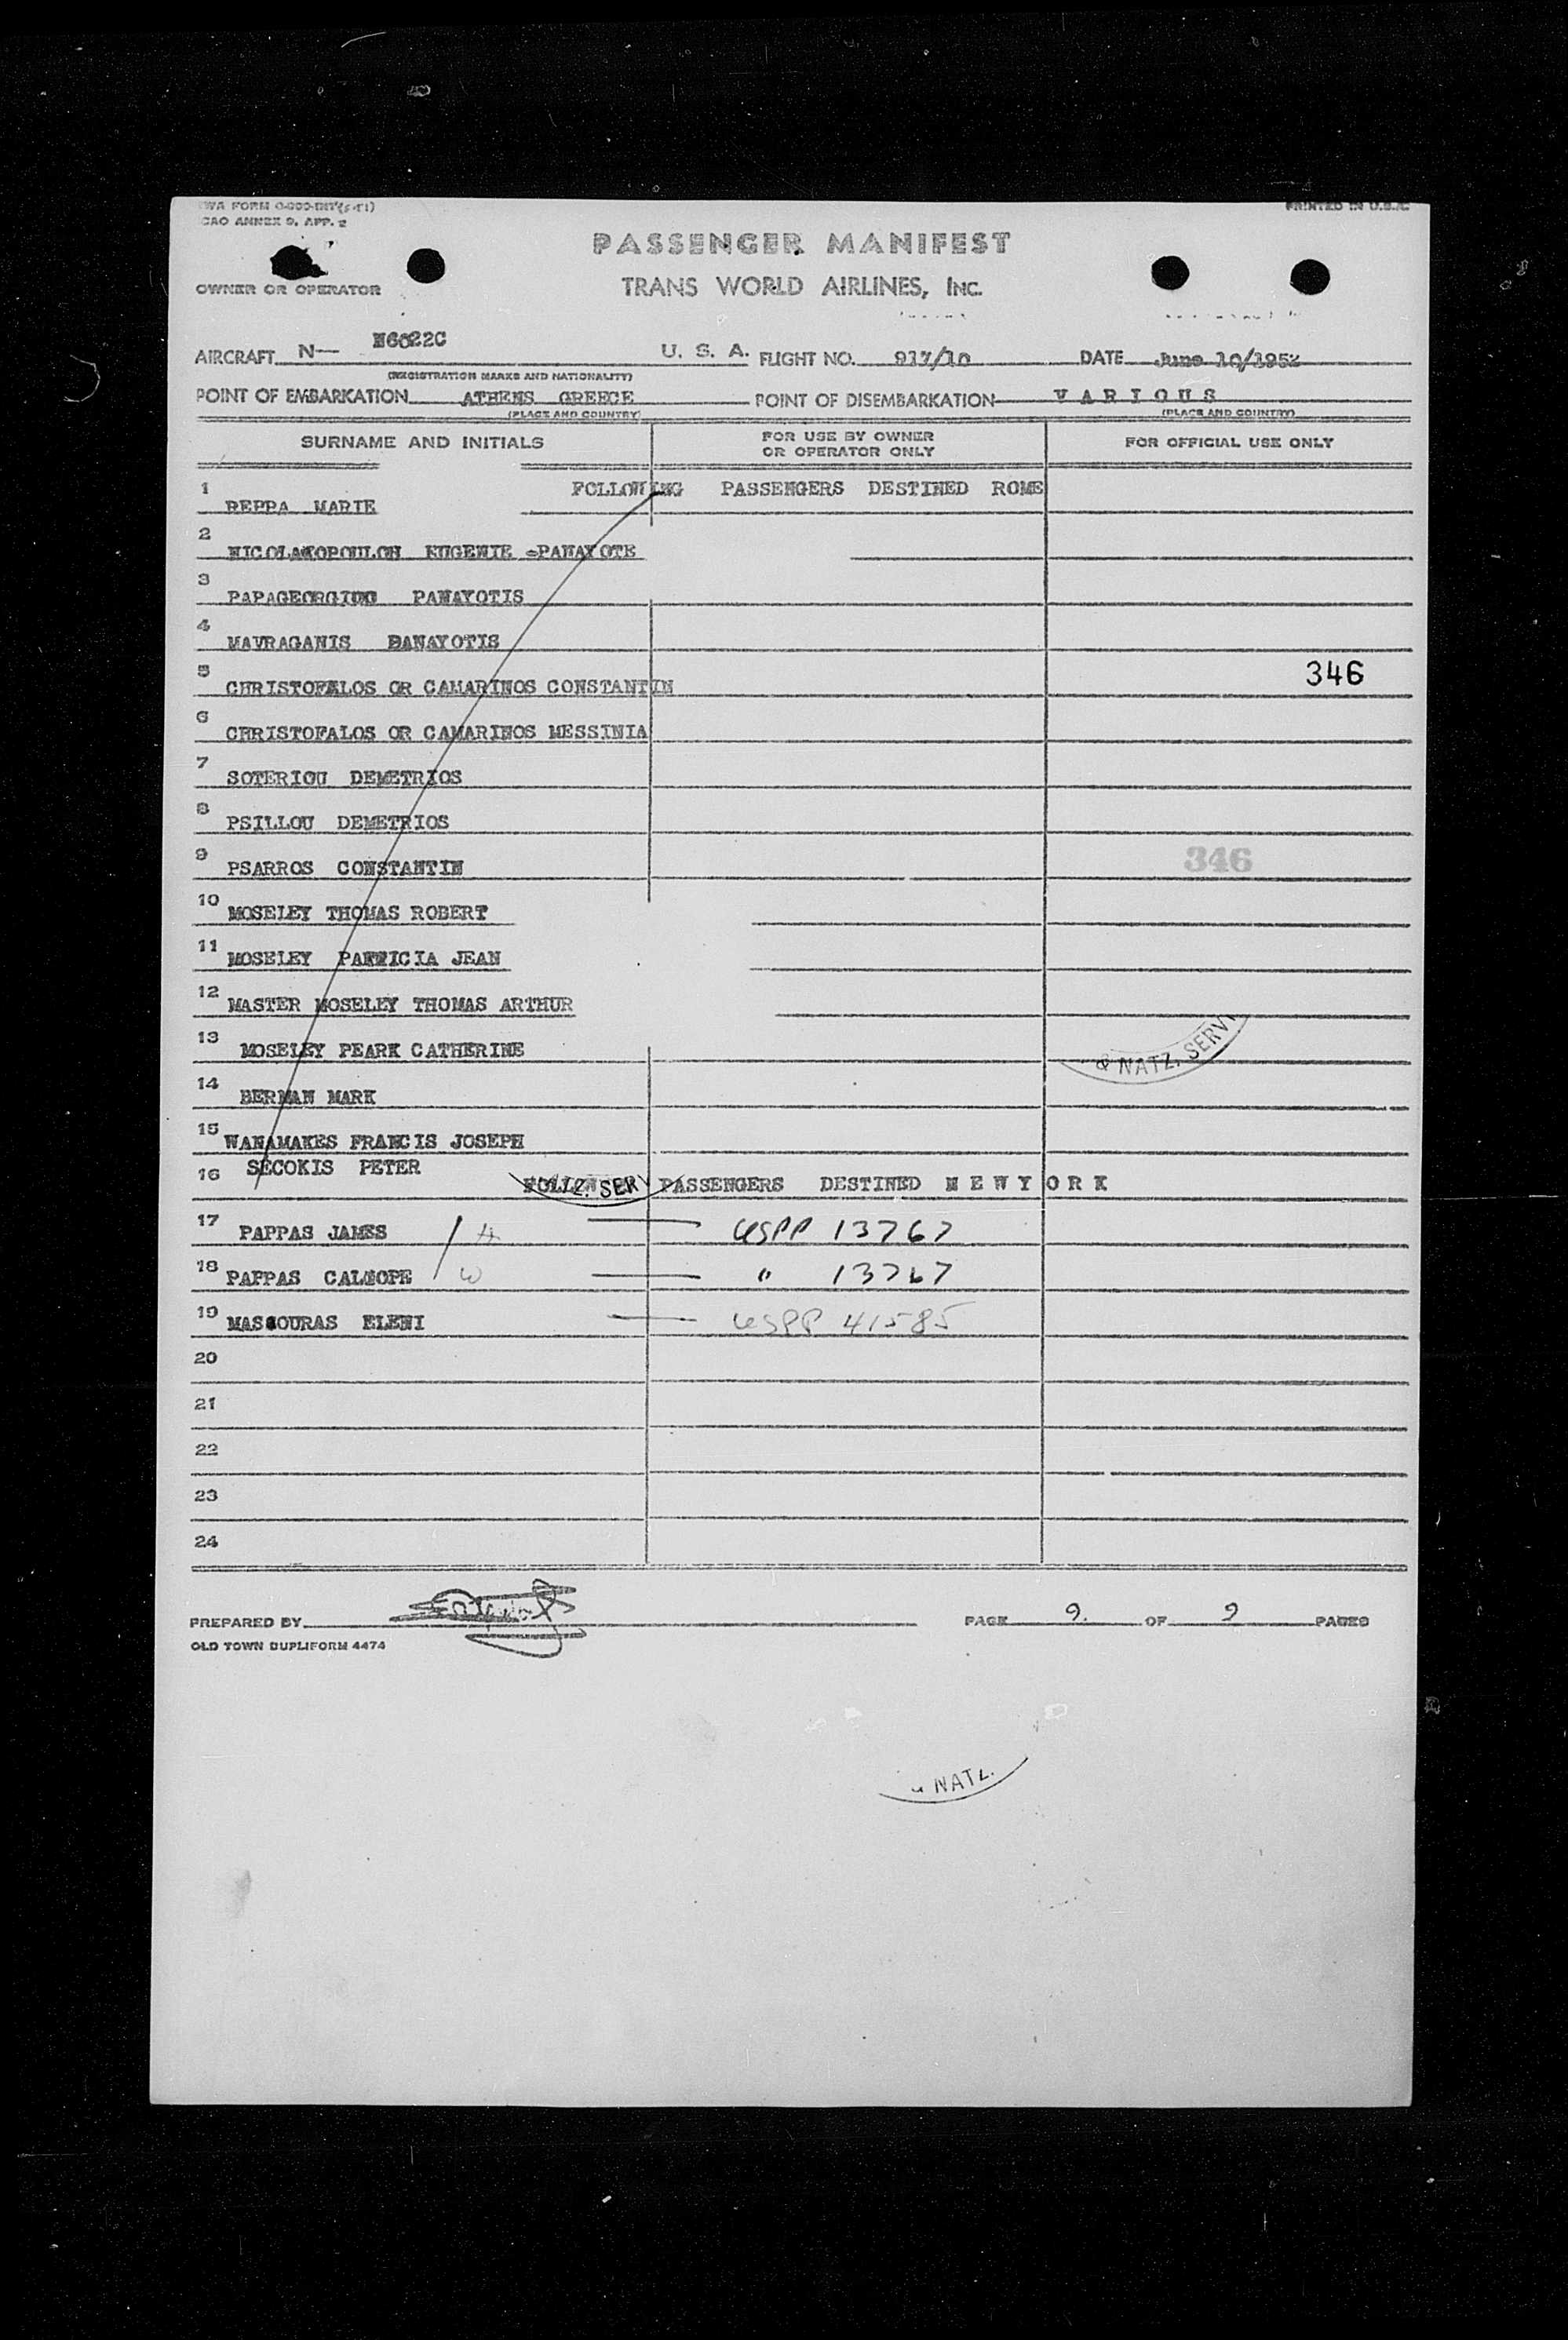 TWA FORM
ICAO ANNEX 9, APP. 2
PRINTED IN U.S.A.
PASSENGER MANIFEST
OWNER OR OPERATOR
TRANS WORLD AIRLINES, INC.
AIRCRAFT N— N6022C U. S. A. FLIGHT NO. 917/10 DATE June 10/1952
(REGISTRATION MARKS AND NATIONALITY)
POINT OF EMBARKATION ATHENS GREECE POINT OF DISEMBARKATION VARIOUS
(PLACE AND COUNTRY) (PLACE AND COUNTRY)
SURNAME AND INITIALS FOR USE BY OWNER OR OPERATOR ONLY FOR OFFICIAL USE ONLY
FOLLOWING PASSENGERS DESTINED ROME
1 REPPA MARIE
2 NICOLAKOPOULOH EUGENIE -PANAYOTE
3 PAPAGEORGIOU PANAYOTIS
4 MAVRAGANIS PANAYOTIS
5 CHRISTOFALOS OR CAMARINOS CONSTANTIN 346
6 CHRISTOFALOS OR CAMARINOS MESSINIA
7 SOTERIOU DEMETRIOS
8 PSILLOU DEMETRIOS
9 PSARROS CONSTANTIN 346
10 MOSELEY THOMAS ROBERT
11 MOSELEY PATRICIA JEAN
12 MASTER MOSELEY THOMAS ARTHUR
13 MOSELEY PEARK CATHERINE
& NATZ. SERV
14 BERMAN MARK
15 WANAMAKES FRANCIS JOSEPH
16 SECOKIS PETER
Z. SERV
PASSENGERS DESTINED NEWYORK
17 PAPPAS JAMES H — USPP 13767
18 PAPPAS CALIOPE W — " 13767
19 MASSOURAS ELENI — USPP 41585
20
21
22
23
24
PREPARED BY PAGE 9 OF 9 PAGES
OLD TOWN DUPLIFORM 4474
& NATZ.